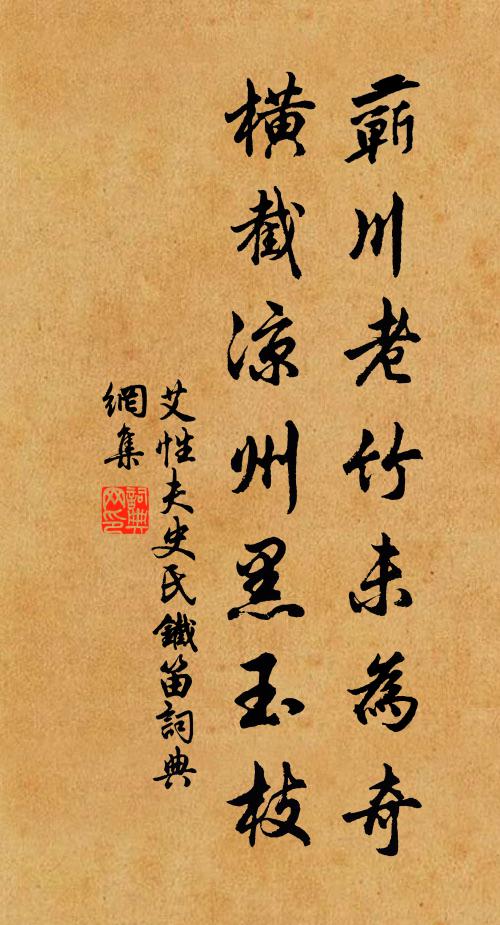 蘄川老竹未為奇
橫截涼州黑玉枝
艾性夫史氏鐵笛詞典
網集
詞典網印